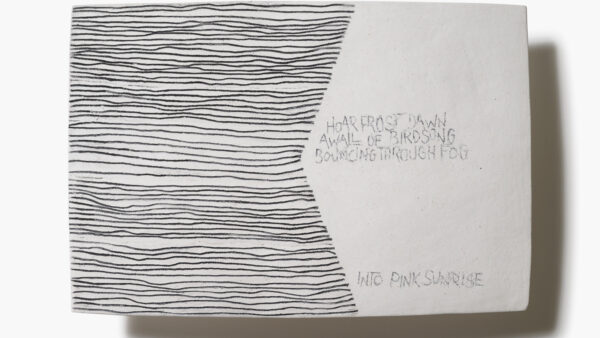 HOAR FROST DAWN
A WALL OF BIRDSONG
BOUNCING THROUGH FOG
INTO PINK SUNRISE